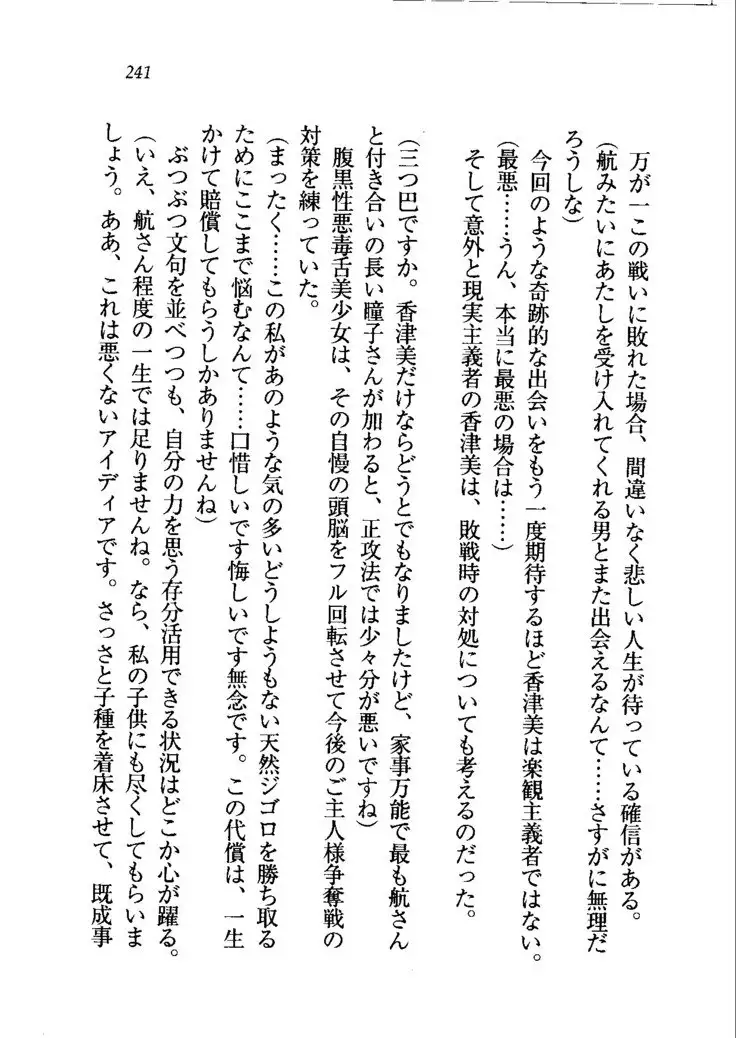 241
万が一この戦いに敗れた場合、間違いなく悲しい人生が待っている確信がある。
(航みたいにあたしを受け入れてくれる男とまた出会えるなんて……さすがに無理だ
ろうしな)
今回のような奇跡的な出会いをもう一度期待するほど香津美は楽観主義者ではない。
(最悪……うん、本当に最悪の場合は……)
そして意外と現実主義者の香津美は、敗戦時の対処についても考えるのだった。
(三つ巴ですか。香津美だけならどうとでもなりましたけど、家事万能で最も航さん
と付き合いの長い瞳子さんが加わると、正攻法では少々分が悪いですね)
腹黒性悪毒舌美少女は、その自慢の頭脳をフル回転させて今後のご主人様争奪戦の
対策を練っていた。
(まったく……この私があのような気の多いどうしようもない天然ジゴロを勝ち取る
ためにここまで悩むなんて……口惜しいです悔しいです無念です。この代償は、一生
かけて賠償してもらうしかありませんね)
ぶつぶつ文句を並べつつも、自分の力を思う存分活用できる状況はどこか心が躍る。
(いえ、航さん程度の一生では足りませんね。なら、私の子供にも尽くしてもらいま
しょう。ああ、これは悪くないアイディアです。さっさと子種を着床させて、既成事